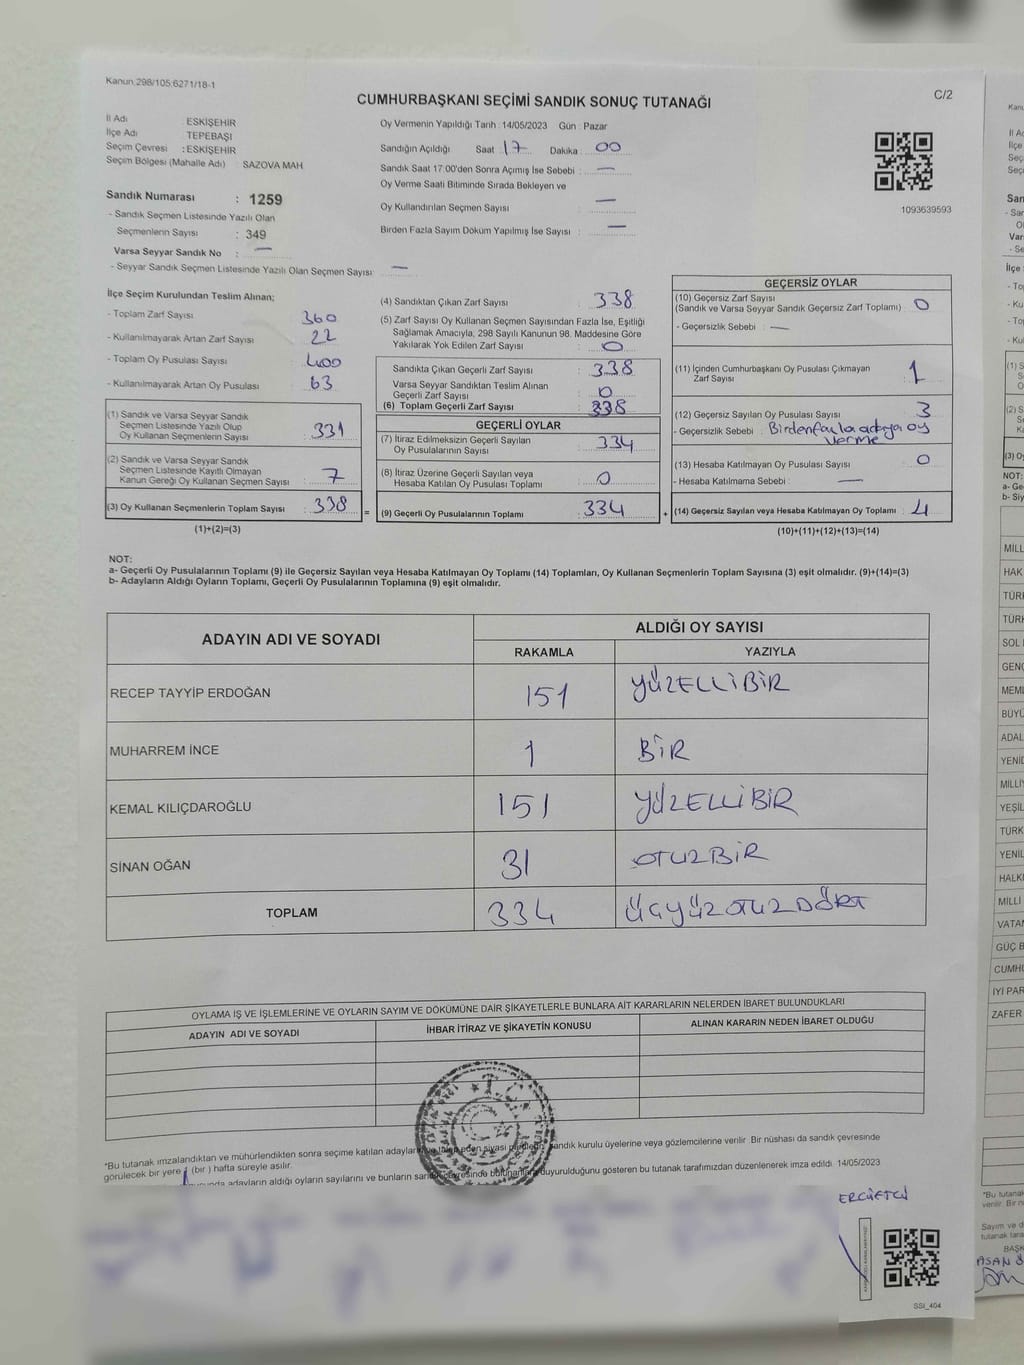 Kanun:298/105:6271/18-1
C/2
CUMHURBAŞKANI SEÇİMİ SANDIK SONUÇ TUTANAĞI
İl Adı ESKİŞEHİR
İlçe Adı TEPEBAŞI
Seçim Çevresi : ESKİŞEHİR
Seçim Bölgesi (Mahalle Adı) SAZOVA MAH
Sandık Numarası : 1259
- Sandık Seçmen Listesinde Yazılı Olan
Seçmenlerin Sayısı : 349
Varsa Seyyar Sandık No : —
- Seyyar Sandık Seçmen Listesinde Yazılı Olan Seçmen Sayısı: —
Oy Vermenin Yapıldığı Tarih : 14/05/2023 Gün : Pazar
Sandığın Açıldığı Saat : 17 Dakika : 00
Sandık Saat 17:00'den Sonra Açımış İse Sebebi : —
Oy Verme Saati Bitiminde Sırada Bekleyen ve
Oy Kullandırılan Seçmen Sayısı : —
Birden Fazla Sayım Döküm Yapılmış İse Sayısı : —
1093639593
İlçe Seçim Kurulundan Teslim Alınan;
- Toplam Zarf Sayısı : 360
- Kullanılmayarak Artan Zarf Sayısı : 22
- Toplam Oy Pusulası Sayısı : 400
- Kullanılmayarak Artan Oy Pusulası : 63
(1) Sandık ve Varsa Seyyar Sandık
Seçmen Listesinde Yazılı Olup
Oy Kullanan Seçmenlerin Sayısı : 331
(2) Sandık ve Varsa Seyyar Sandık
Seçmen Listesinde Kayıtlı Olmayan
Kanun Gereği Oy Kullanan Seçmen Sayısı : 7
(3) Oy Kullanan Seçmenlerin Toplam Sayısı : 338 =
(1)+(2)=(3)
(4) Sandıktan Çıkan Zarf Sayısı : 338
(5) Zarf Sayısı Oy Kullanan Seçmen Sayısından Fazla İse, Eşitliği
Sağlamak Amacıyla, 298 Sayılı Kanunun 98. Maddesine Göre
Yakılarak Yok Edilen Zarf Sayısı : 0
Sandıkta Çıkan Geçerli Zarf Sayısı : 338
Varsa Seyyar Sandıktan Teslim Alınan
Geçerli Zarf Sayısı : 0
(6) Toplam Geçerli Zarf Sayısı : 338
GEÇERLİ OYLAR
(7) İtiraz Edilmeksizin Geçerli Sayılan
Oy Pusulalarının Sayısı : 334
(8) İtiraz Üzerine Geçerli Sayılan veya
Hesaba Katılan Oy Pusulası Toplamı : 0
(9) Geçerli Oy Pusulalarının Toplamı : 334 +
GEÇERSİZ OYLAR
(10) Geçersiz Zarf Sayısı
(Sandık ve Varsa Seyyar Sandık Geçersiz Zarf Toplamı) : 0
- Geçersizlik Sebebi : —
(11) İçinden Cumhurbaşkanı Oy Pusulası Çıkmayan
Zarf Sayısı : 1
(12) Geçersiz Sayılan Oy Pusulası Sayısı : 3
- Geçersizlik Sebebi : Birden fazla adaya oy
verme
(13) Hesaba Katılmayan Oy Pusulası Sayısı : 0
- Hesaba Katılmama Sebebi : —
(14) Geçersiz Sayılan veya Hesaba Katılmayan Oy Toplamı : 4
(10)+(11)+(12)+(13)=(14)
NOT:
a- Geçerli Oy Pusulalarının Toplamı (9) ile Geçersiz Sayılan veya Hesaba Katılmayan Oy Toplamı (14) Toplamları, Oy Kullanan Seçmenlerin Toplam Sayısına (3) eşit olmalıdır. (9)+(14)=(3)
b- Adayların Aldığı Oyların Toplamı, Geçerli Oy Pusulalarının Toplamına (9) eşit olmalıdır.
ADAYIN ADI VE SOYADI ALDIĞI OY SAYISI
RAKAMLA YAZIYLA
RECEP TAYYİP ERDOĞAN 151 YÜZELLİBİR
MUHARREM İNCE 1 BİR
KEMAL KILIÇDAROĞLU 151 YÜZELLİBİR
SİNAN OĞAN 31 OTUZBİR
TOPLAM 334 ÜÇYÜZOTUZDÖRT
OYLAMA İŞ VE İŞLEMLERİNE VE OYLARIN SAYIM VE DÖKÜMÜNE DAİR ŞİKAYETLERLE BUNLARA AİT KARARLARIN NELERDEN İBARET BULUNDUKLARI
ADAYIN ADI VE SOYADI İHBAR İTİRAZ VE ŞİKAYETİN KONUSU ALINAN KARARIN NEDEN İBARET OLDUĞU
*Bu tutanak imzalandıktan ve mühürlendikten sonra seçime katılan adayların siyasi sandık kurulu üyelerine veya gözlemcilerine verilir. Bir nüshası da sandık çevresinde
görülecek bir yere (bir) hafta süreyle asılır.
adayların aldığı oyların sayılarını ve bunların duyurulduğunu gösteren bu tutanak tarafımızdan düzenlenerek imza edildi. 14/05/2023
SSİ_404
Sandık
NOT:
MİLL
HAK
TÜRK
TÜRK
SOL
GENÇ
MEML
BÜYÜ
ADAL
YENİD
MİLLİY
YEŞİL
TÜRK
YENİL
HALKI
MİLLİ
VATAN
GÜÇ B
CUMHU
İYİ PAR
ZAFER